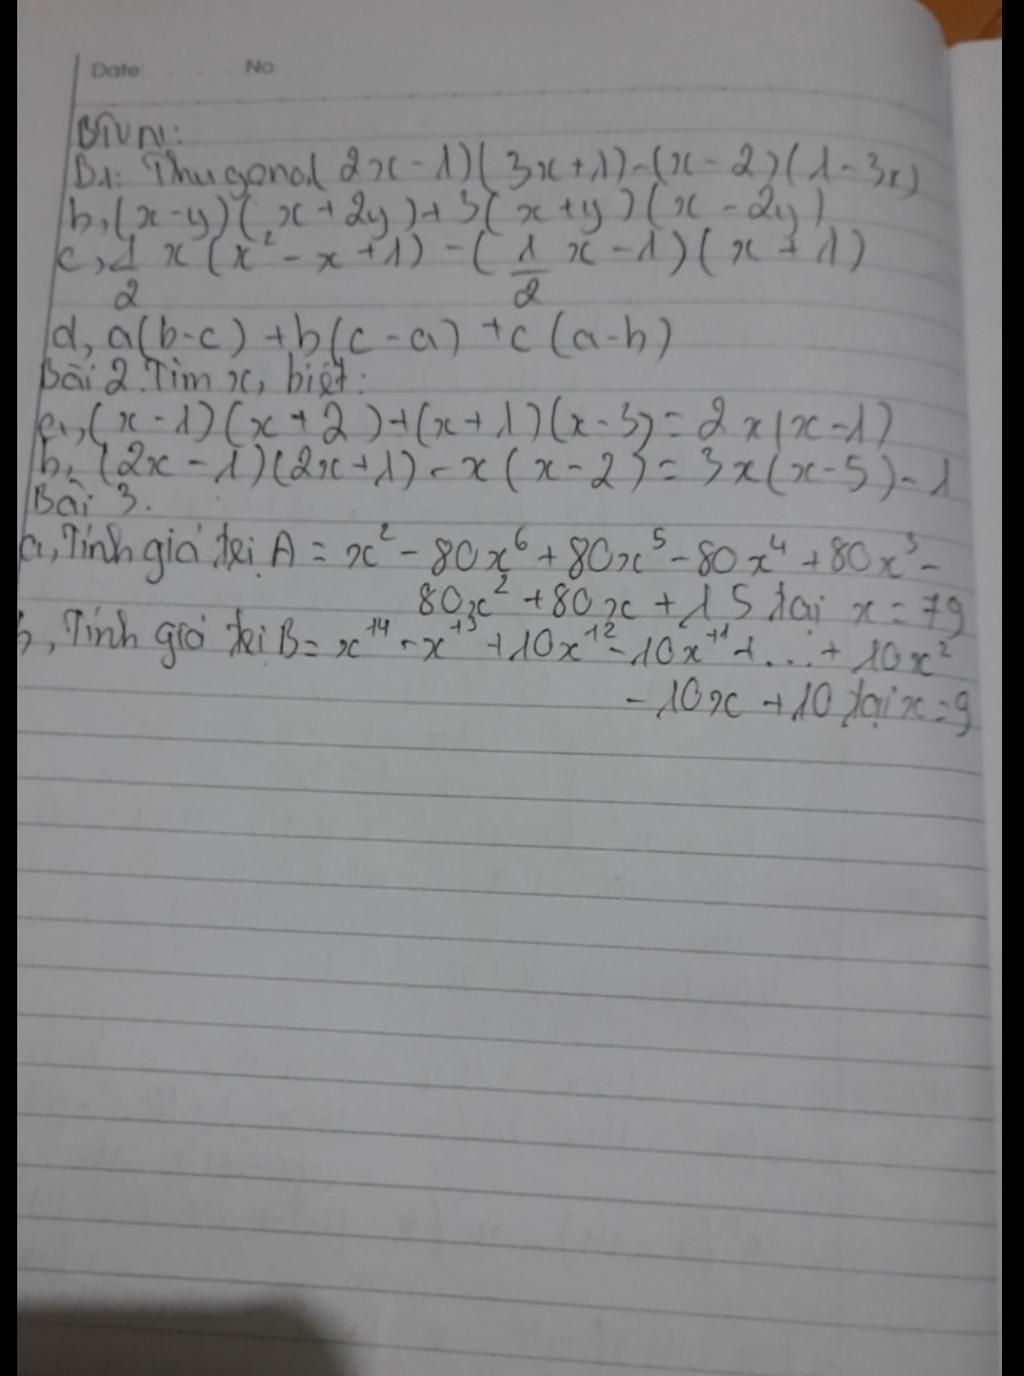 Date: No.
BTVN:
B1: Thu gọn a, (2x - 1)(3x + 1) - (x - 2)(1 - 3x)
b, (x - y)(x + 2y) + 3(x + y)(x - 2y)
c, 1/2 x(x² - x + 1) - (1/2 x - 1)(x + 1)
d, a(b - c) + b(c - a) + c(a - b)
Bài 2. Tìm x, biết:
a, (x - 1)(x + 2) + (x + 1)(x - 3) = 2x(x - 1)
b, (2x - 1)(2x + 1) - x(x - 2) = 3x(x - 5) - 1
Bài 3.
a, Tính giá trị A = x² - 80x⁶ + 80x⁵ - 80x⁴ + 80x³ -
80x² + 80x + 15 tại x = 79
b, Tính giá trị B = x¹⁴ - x¹³ + 10x¹² - 10x¹¹ + ... + 10x²
- 10x + 10 tại x = 9